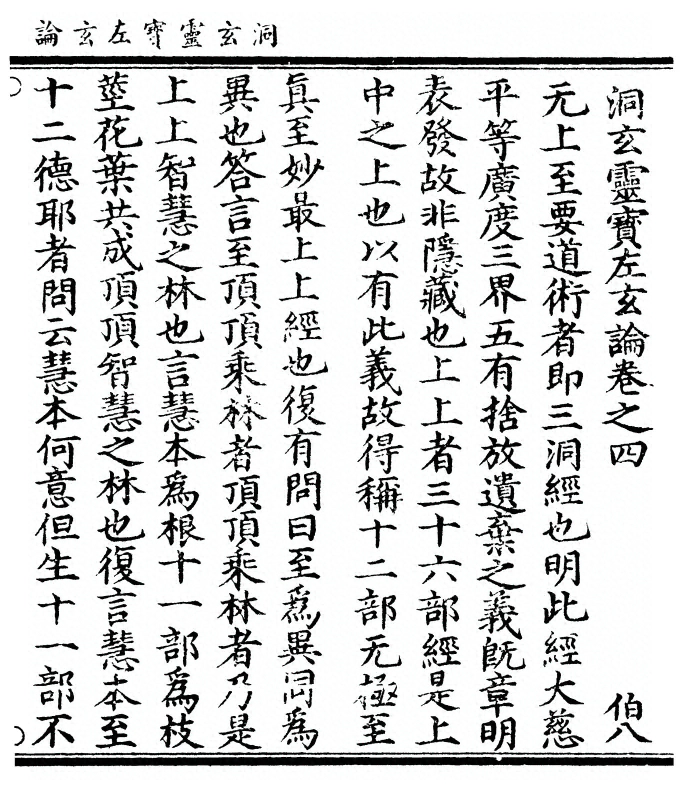 洞玄靈寶左玄論
洞玄靈寶左玄論卷之四　伯八
无上至要道術者即三洞經也明此經大慈
平等廣度三界五有捨放遺棄之義旣章明
表發故非隱藏也上上者三十六部經是上
中之上也以有此義故得稱十二部无極至
眞至妙最上上經也復有問曰至爲異同爲
異也答言至頂頂乘林者頂頂乘林者乃是
上上智慧之林也言慧本爲根十一部爲枝
莖花葉共成頂頂智慧之林也復言慧本至
十二德耶者問云慧本何意但生十一部不